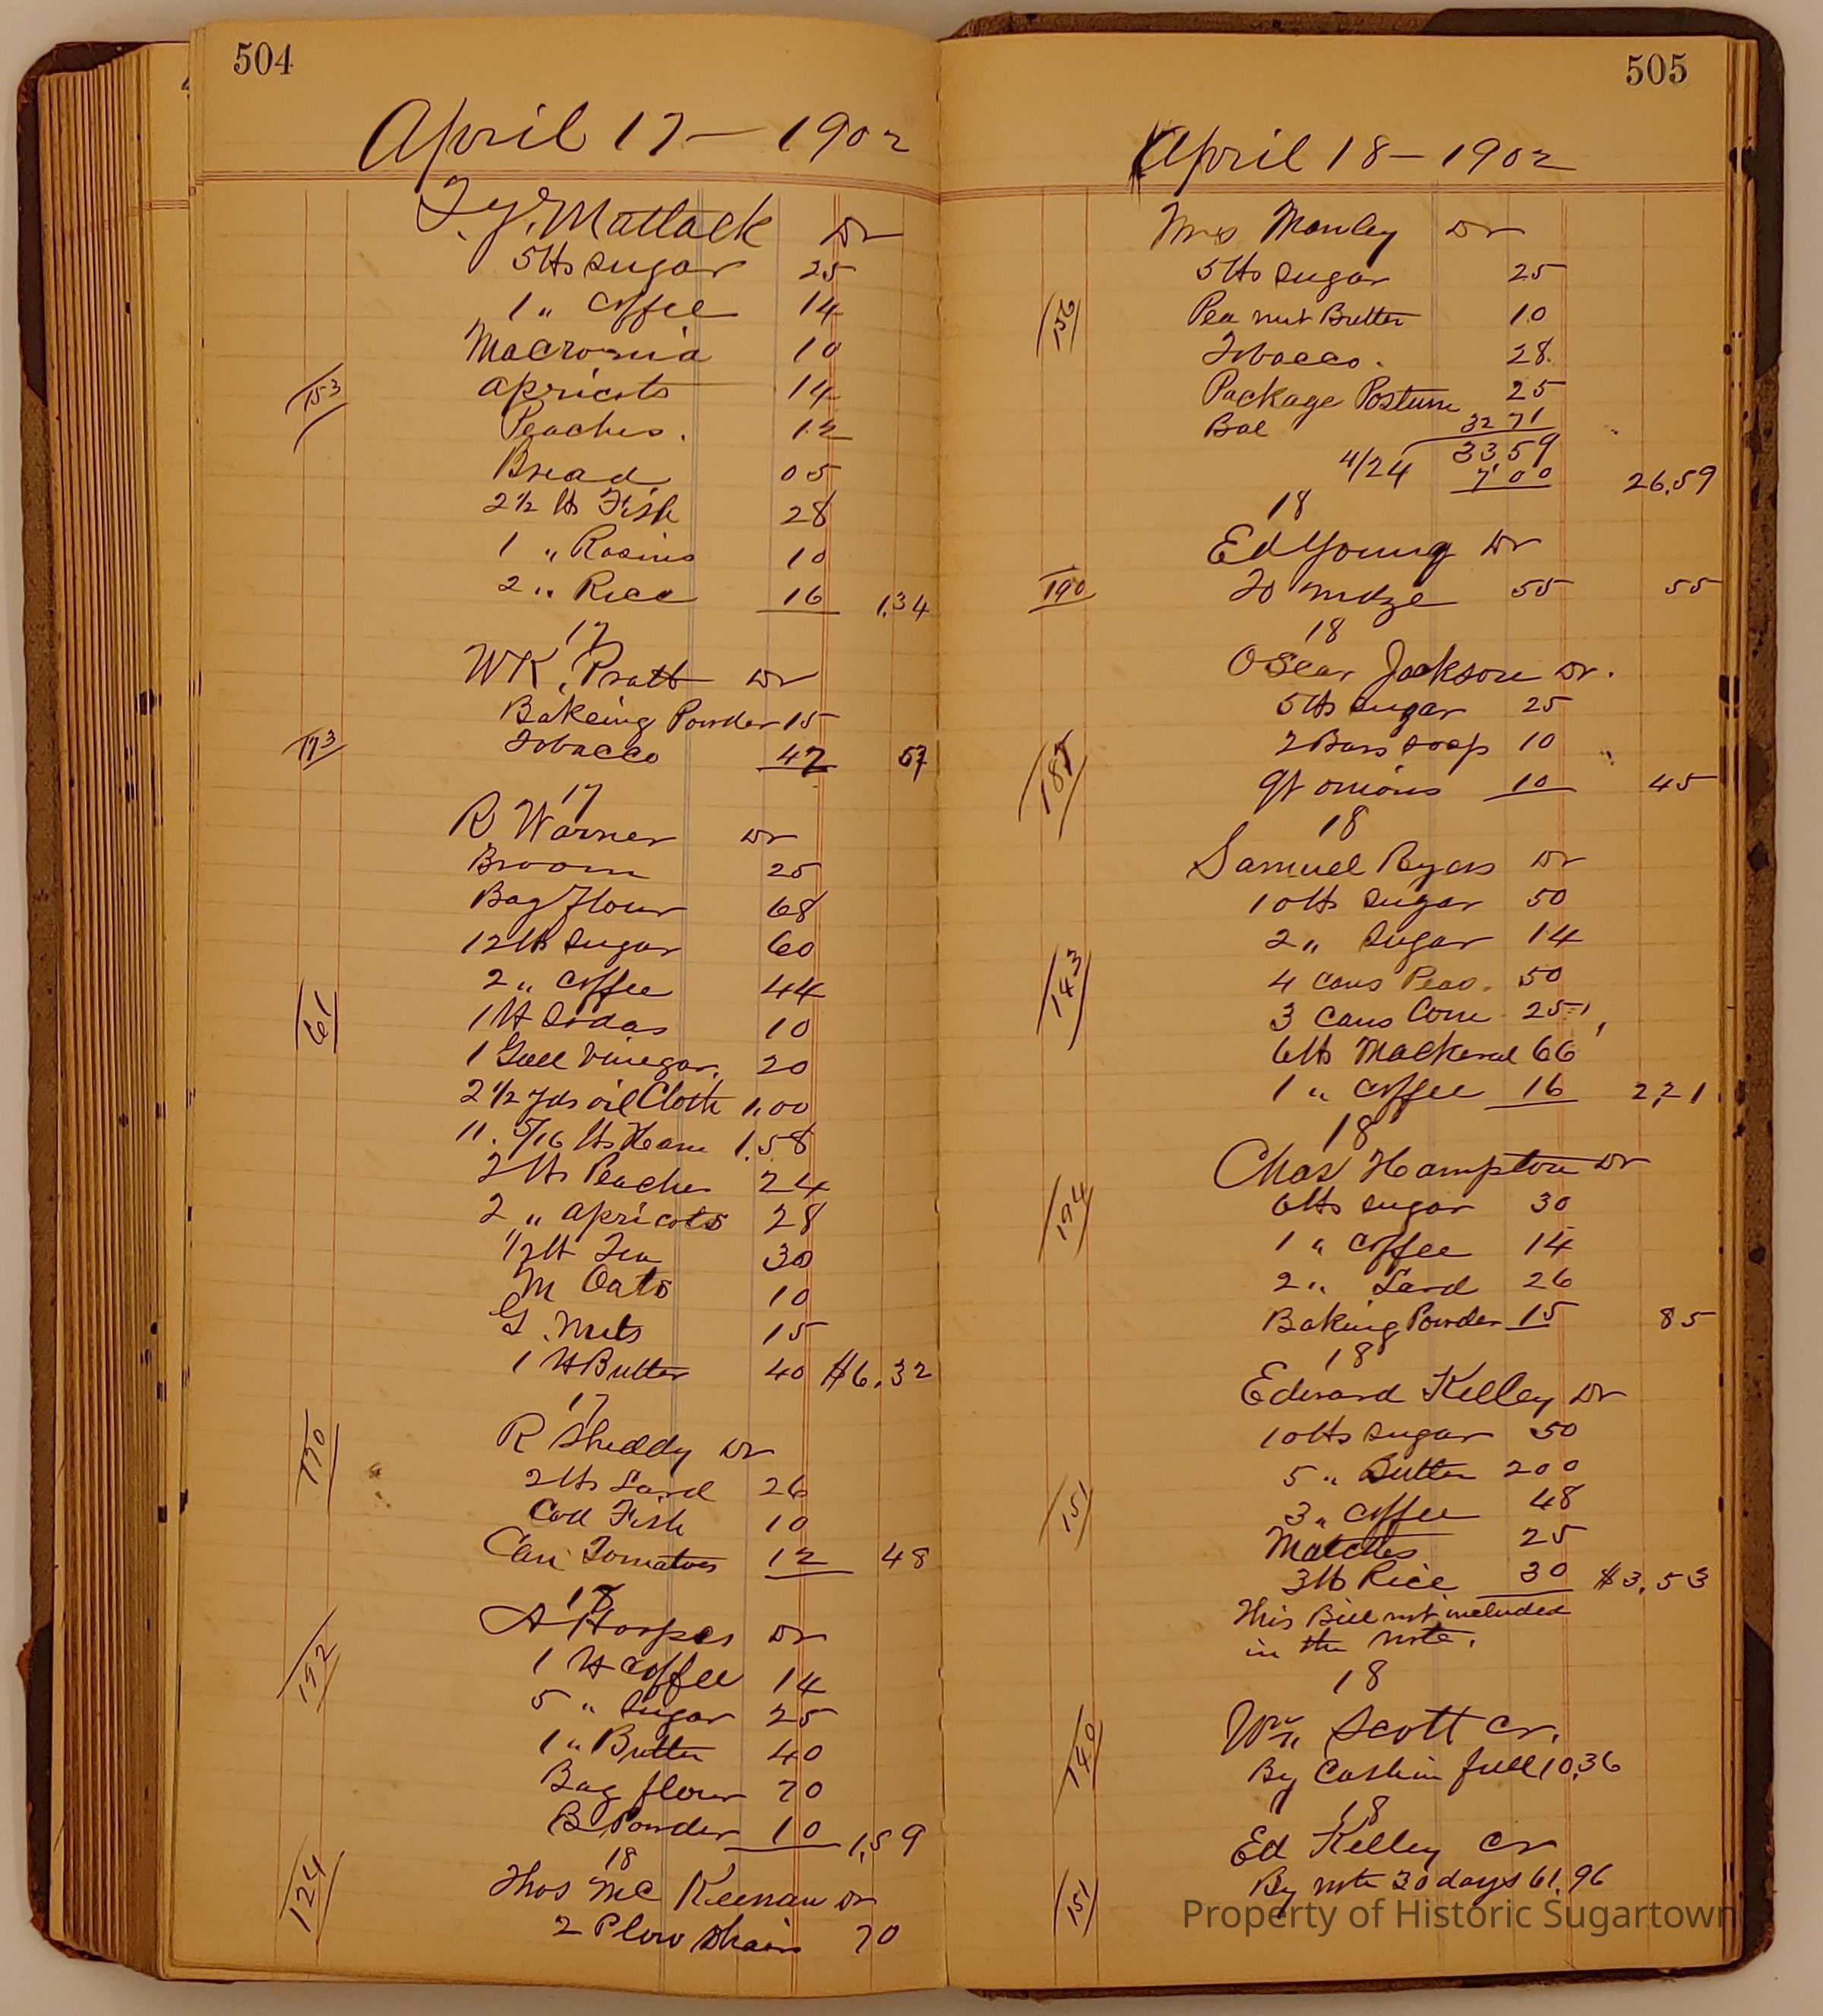 504
April 17 — 1902
153
Mattack Dr
5 lbs Sugar 25
1 " Coffee 14
Macronia 10
Apricots 14
Peaches. 12
Bread 05
2 1/2 lbs Fish 28
1 " Rasins 10
2 " Rice 16 1.34
17
WK. Pratt Dr
173
Bakeing Powder 15
Tobacco 42 57
17
R Warner Dr
61
Broom 25
Bag Flour 68
12 lbs Sugar 60
2 " Coffee 44
1 lb Sodas 10
1 Gall Vinegar. 20
2 1/2 yds oil Cloth 1.00
11. 5/16 lbs Ham 1.58
2 lbs Peaches 24
2 " Apricots 28
1/2 lb Tea 30
M Oats 10
G. Nuts 15
1 lb Butter 40 $6.32
17
170
R Sheddy Dr
2 lbs Lard 26
Cod Fish 10
Can Tomatoes 12 48
18
192
A Hoopes Dr
1 lb Coffee 14
5 " Sugar 25
1 " Butter 40
Bag flour 70
B Powder 10 1.59
18
124
Thos McKeenan Dr
2 Plow Shairs 70
505
April 18 — 1902
156
Mrs Manley Dr
5 lbs Sugar 25
Pea nut Butter 10
Tobacco. 28.
Package Postum 25
Bal 32 71
33 59
4/24 7 00 26.59
18
Ed Young Dr
190
To mdze 55 55
18
Oscar Jackson Dr.
187
5 lbs Sugar 25
2 Bars Soap 10
qt onions 10 45
18
Samuel Byers Dr
143
10 lbs Sugar 50
2 " Sugar 14
4 cans Peas. 50
3 cans Corn 25
6 lbs Mackeral 66
1 " Coffee 16 2.21
18
Chas Hampton Dr
174
6 lbs Sugar 30
1 " Coffee 14
2 " Lard 26
Baking Powder 15 85
18
Edward Kelley Dr
151
10 lbs Sugar 50
5 " Butter 200
3 " Coffee 48
Matches 25
3 lb Rice 30 $3.53
This Bill not included
in the note.
18
140
Wm Scott Cr.
By Cash in full 10.36
18
Ed Kelley Cr
151
By note 30 days 61.96
Property of Historic Sugartown